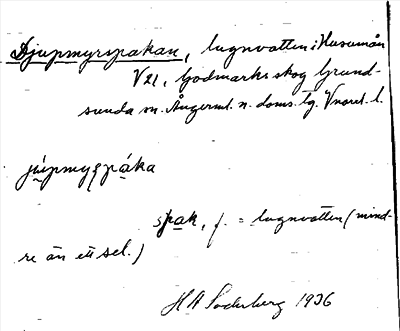 Djupmyrspakan, lugnvatten i Husumån
V 21, Godmarks skog Grund-
sunda sn. Ångerml. n. doms. tg. Vnorrl. l.
júpmyʂpàka
spak, f. = lugnvatten (mind-
re än ett sel.)
H A Söderberg 1936